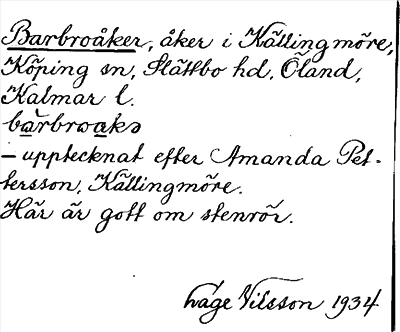 Barbroåker, åker i Källingmöre,
Köping sn, Slättbo hd, Öland,
Kalmar l.
barbrωakə
– upptecknat efter Amanda Pet-
tersson, Källingmöre.
Här är gott om stenrör.
Nilsson 1934